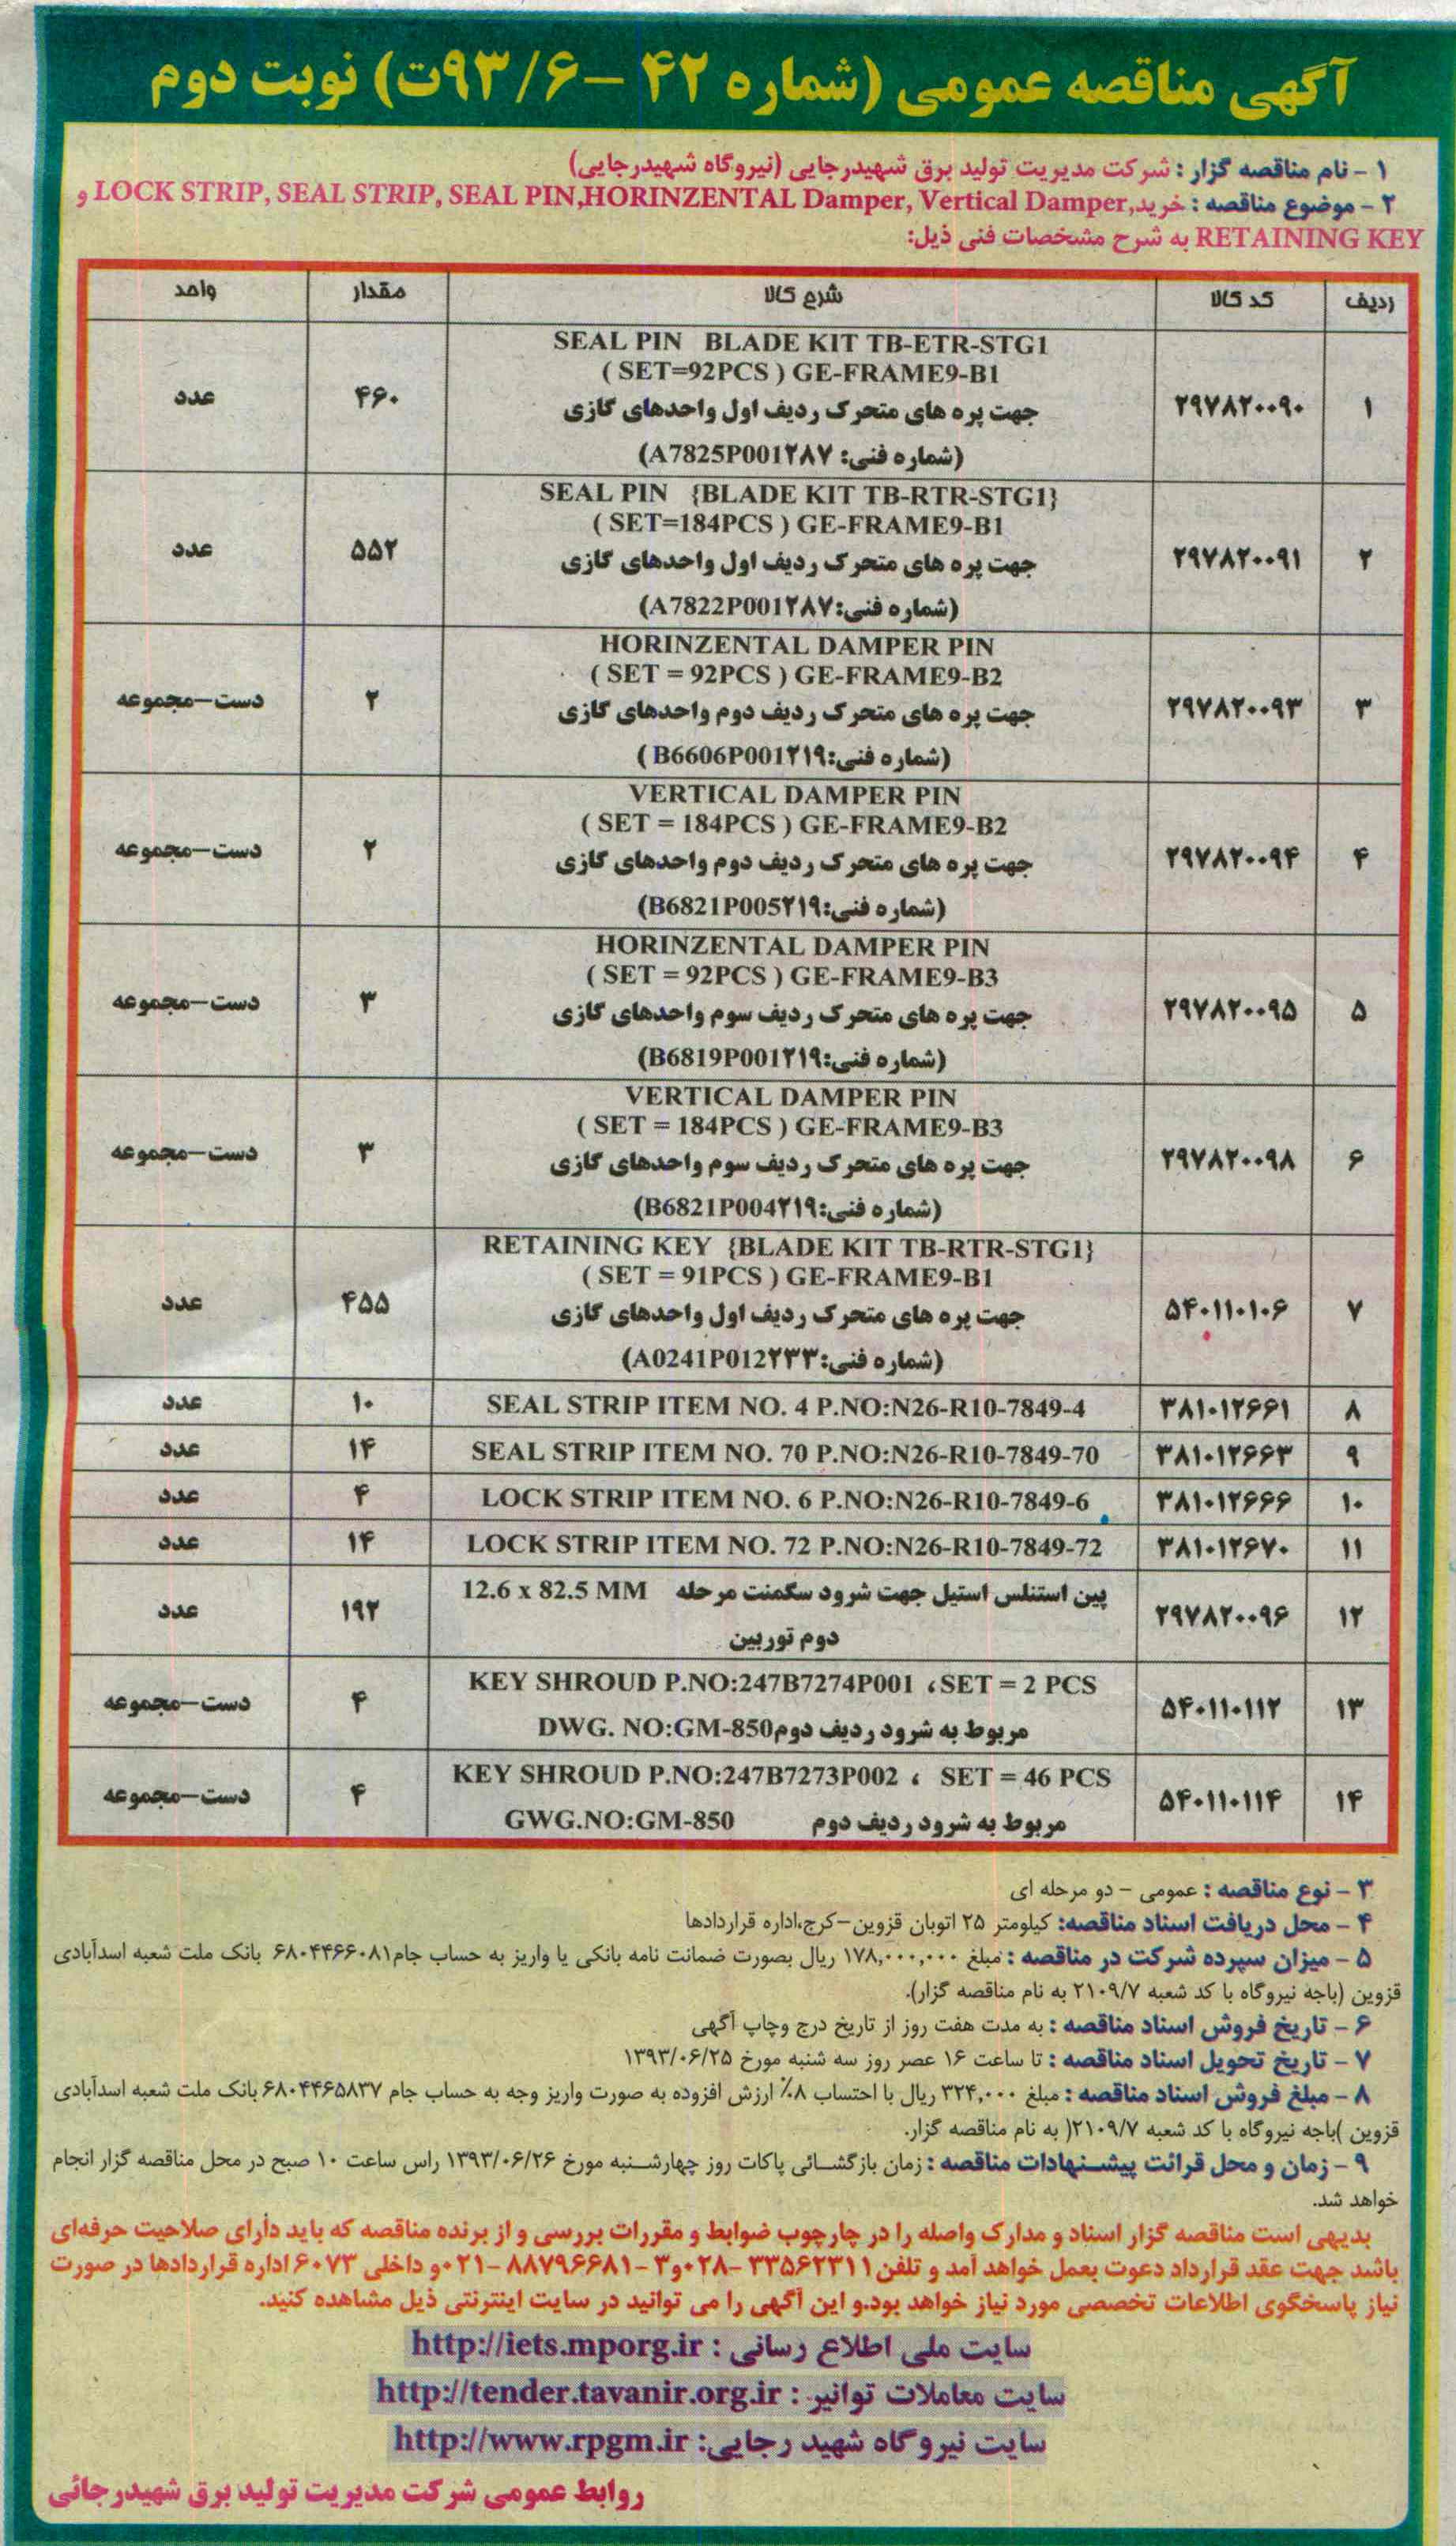 آگهی مناقصه عمومی (شماره ۴۲ –۹۳/۶ت) نوبت دوم
۱ - نام مناقصه گزار : شرکت مدیریت تولید برق شهیدرجایی (نیروگاه شهیدرجایی)
۲ - موضوع مناقصه : خرید,LOCK STRIP, SEAL STRIP, SEAL PIN,HORINZENTAL Damper, Vertical Damper و
RETAINING KEY به شرح مشخصات فنی ذیل:
ردیف کد کالا شرح کالا مقدار واحد
SEAL PIN BLADE KIT TB-ETR-STG1
( SET=92PCS ) GE-FRAME9-B1
۱ ۲۹۷۸۲۰۰۹۰ جهت پره های متحرک ردیف اول واحدهای گازی ۴۶۰ عدد
(شماره فنی: A7825P001۲۸۷)
SEAL PIN {BLADE KIT TB-RTR-STG1}
( SET=184PCS ) GE-FRAME9-B1
۲ ۲۹۷۸۲۰۰۹۱ جهت پره های متحرک ردیف اول واحدهای گازی ۵۵۲ عدد
(شماره فنی:A7822P001۲۸۷)
HORINZENTAL DAMPER PIN
( SET = 92PCS ) GE-FRAME9-B2
۳ ۲۹۷۸۲۰۰۹۳ جهت پره های متحرک ردیف دوم واحدهای گازی ۲ دست–مجموعه
(شماره فنی:B6606P001۲۱۹ )
VERTICAL DAMPER PIN
( SET = 184PCS ) GE-FRAME9-B2
۴ ۲۹۷۸۲۰۰۹۴ جهت پره های متحرک ردیف دوم واحدهای گازی ۲ دست–مجموعه
(شماره فنی:B6821P005۲۱۹)
HORINZENTAL DAMPER PIN
( SET = 92PCS ) GE-FRAME9-B3
۵ ۲۹۷۸۲۰۰۹۵ جهت پره های متحرک ردیف سوم واحدهای گازی ۳ دست–مجموعه
(شماره فنی:B6819P001۲۱۹)
VERTICAL DAMPER PIN
( SET = 184PCS ) GE-FRAME9-B3
۶ ۲۹۷۸۲۰۰۹۸ جهت پره های متحرک ردیف سوم واحدهای گازی ۳ دست–مجموعه
(شماره فنی:B6821P004۲۱۹)
RETAINING KEY {BLADE KIT TB-RTR-STG1}
( SET = 91PCS ) GE-FRAME9-B1
۷ ۵۴۰۱۱۰۱۰۶ جهت پره های متحرک ردیف اول واحدهای گازی ۴۵۵ عدد
(شماره فنی:A0241P012۲۳۳)
۸ ۳۸۱۰۱۲۶۶۱ SEAL STRIP ITEM NO. 4 P.NO:N26-R10-7849-4 ۱۰ عدد
۹ ۳۸۱۰۱۲۶۶۳ SEAL STRIP ITEM NO. 70 P.NO:N26-R10-7849-70 ۱۴ عدد
۱۰ ۳۸۱۰۱۲۶۶۶ LOCK STRIP ITEM NO. 6 P.NO:N26-R10-7849-6 ۴ عدد
۱۱ ۳۸۱۰۱۲۶۷۰ LOCK STRIP ITEM NO. 72 P.NO:N26-R10-7849-72 ۱۴ عدد
۱۲ ۲۹۷۸۲۰۰۹۶ پین استنلس استیل جهت شرود سگمنت مرحله 12.6 x 82.5 MM ۱۹۲ عدد
دوم توربین
KEY SHROUD P.NO:247B7274P001 ، SET = 2 PCS
۱۳ ۵۴۰۱۱۰۱۱۲ مربوط به شرود ردیف دوم DWG. NO:GM-850 ۴ دست–مجموعه
KEY SHROUD P.NO:247B7273P002 ، SET = 46 PCS
۱۴ ۵۴۰۱۱۰۱۱۴ مربوط به شرود ردیف دوم GWG.NO:GM-850 ۴ دست–مجموعه
۳ - نوع مناقصه : عمومی - دو مرحله ای
۴ - محل دریافت اسناد مناقصه: کیلومتر ۲۵ اتوبان قزوین-کرج،اداره قراردادها
۵ - میزان سپرده شرکت در مناقصه : مبلغ ۱۷۸,۰۰۰,۰۰۰ ریال بصورت ضمانت نامه بانکی یا واریز به حساب جام۶۸۰۴۴۶۶۰۸۱ بانک ملت شعبه اسدآبادی
قزوین (باجه نیروگاه با کد شعبه ۲۱۰۹/۷ به نام مناقصه گزار).
۶ - تاریخ فروش اسناد مناقصه : به مدت هفت روز از تاریخ درج وچاپ آگهی
۷ - تاریخ تحویل اسناد مناقصه : تا ساعت ۱۶ عصر روز سه شنبه مورخ ۱۳۹۳/۰۶/۲۵
۸ - مبلغ فروش اسناد مناقصه : مبلغ ۳۲۴,۰۰۰ ریال با احتساب ۸٪ ارزش افزوده به صورت واریز وجه به حساب جام ۶۸۰۴۴۶۵۸۳۷ بانک ملت شعبه اسدآبادی
قزوین )باجه نیروگاه با کد شعبه ۲۱۰۹/۷( به نام مناقصه گزار.
۹ - زمان و محل قرائت پیشنهادات مناقصه : زمان بازگشائی پاکات روز چهارشنبه مورخ ۱۳۹۳/۰۶/۲۶ راس ساعت ۱۰ صبح در محل مناقصه گزار انجام
خواهد شد.
بدیهی است مناقصه گزار اسناد و مدارک واصله را در چارچوب ضوابط و مقررات بررسی و از برنده مناقصه که باید دارای صلاحیت حرفه‌ای
باشد جهت عقد قرارداد دعوت بعمل خواهد آمد و تلفن ۳۳۵۶۲۳۱۱ -۰۲۸و۳ - ۸۸۷۹۶۶۸۱ -۰۲۱و داخلی ۶۰۷۳ اداره قراردادها در صورت
نیاز پاسخگوی اطلاعات تخصصی مورد نیاز خواهد بود.و این آگهی را می توانید در سایت اینترنتی ذیل مشاهده کنید.
سایت ملی اطلاع رسانی : http://iets.mporg.ir
سایت معاملات توانیر : http://tender.tavanir.org.ir
سایت نیروگاه شهید رجایی: http://www.rpgm.ir
روابط عمومی شرکت مدیریت تولید برق شهیدرجائی